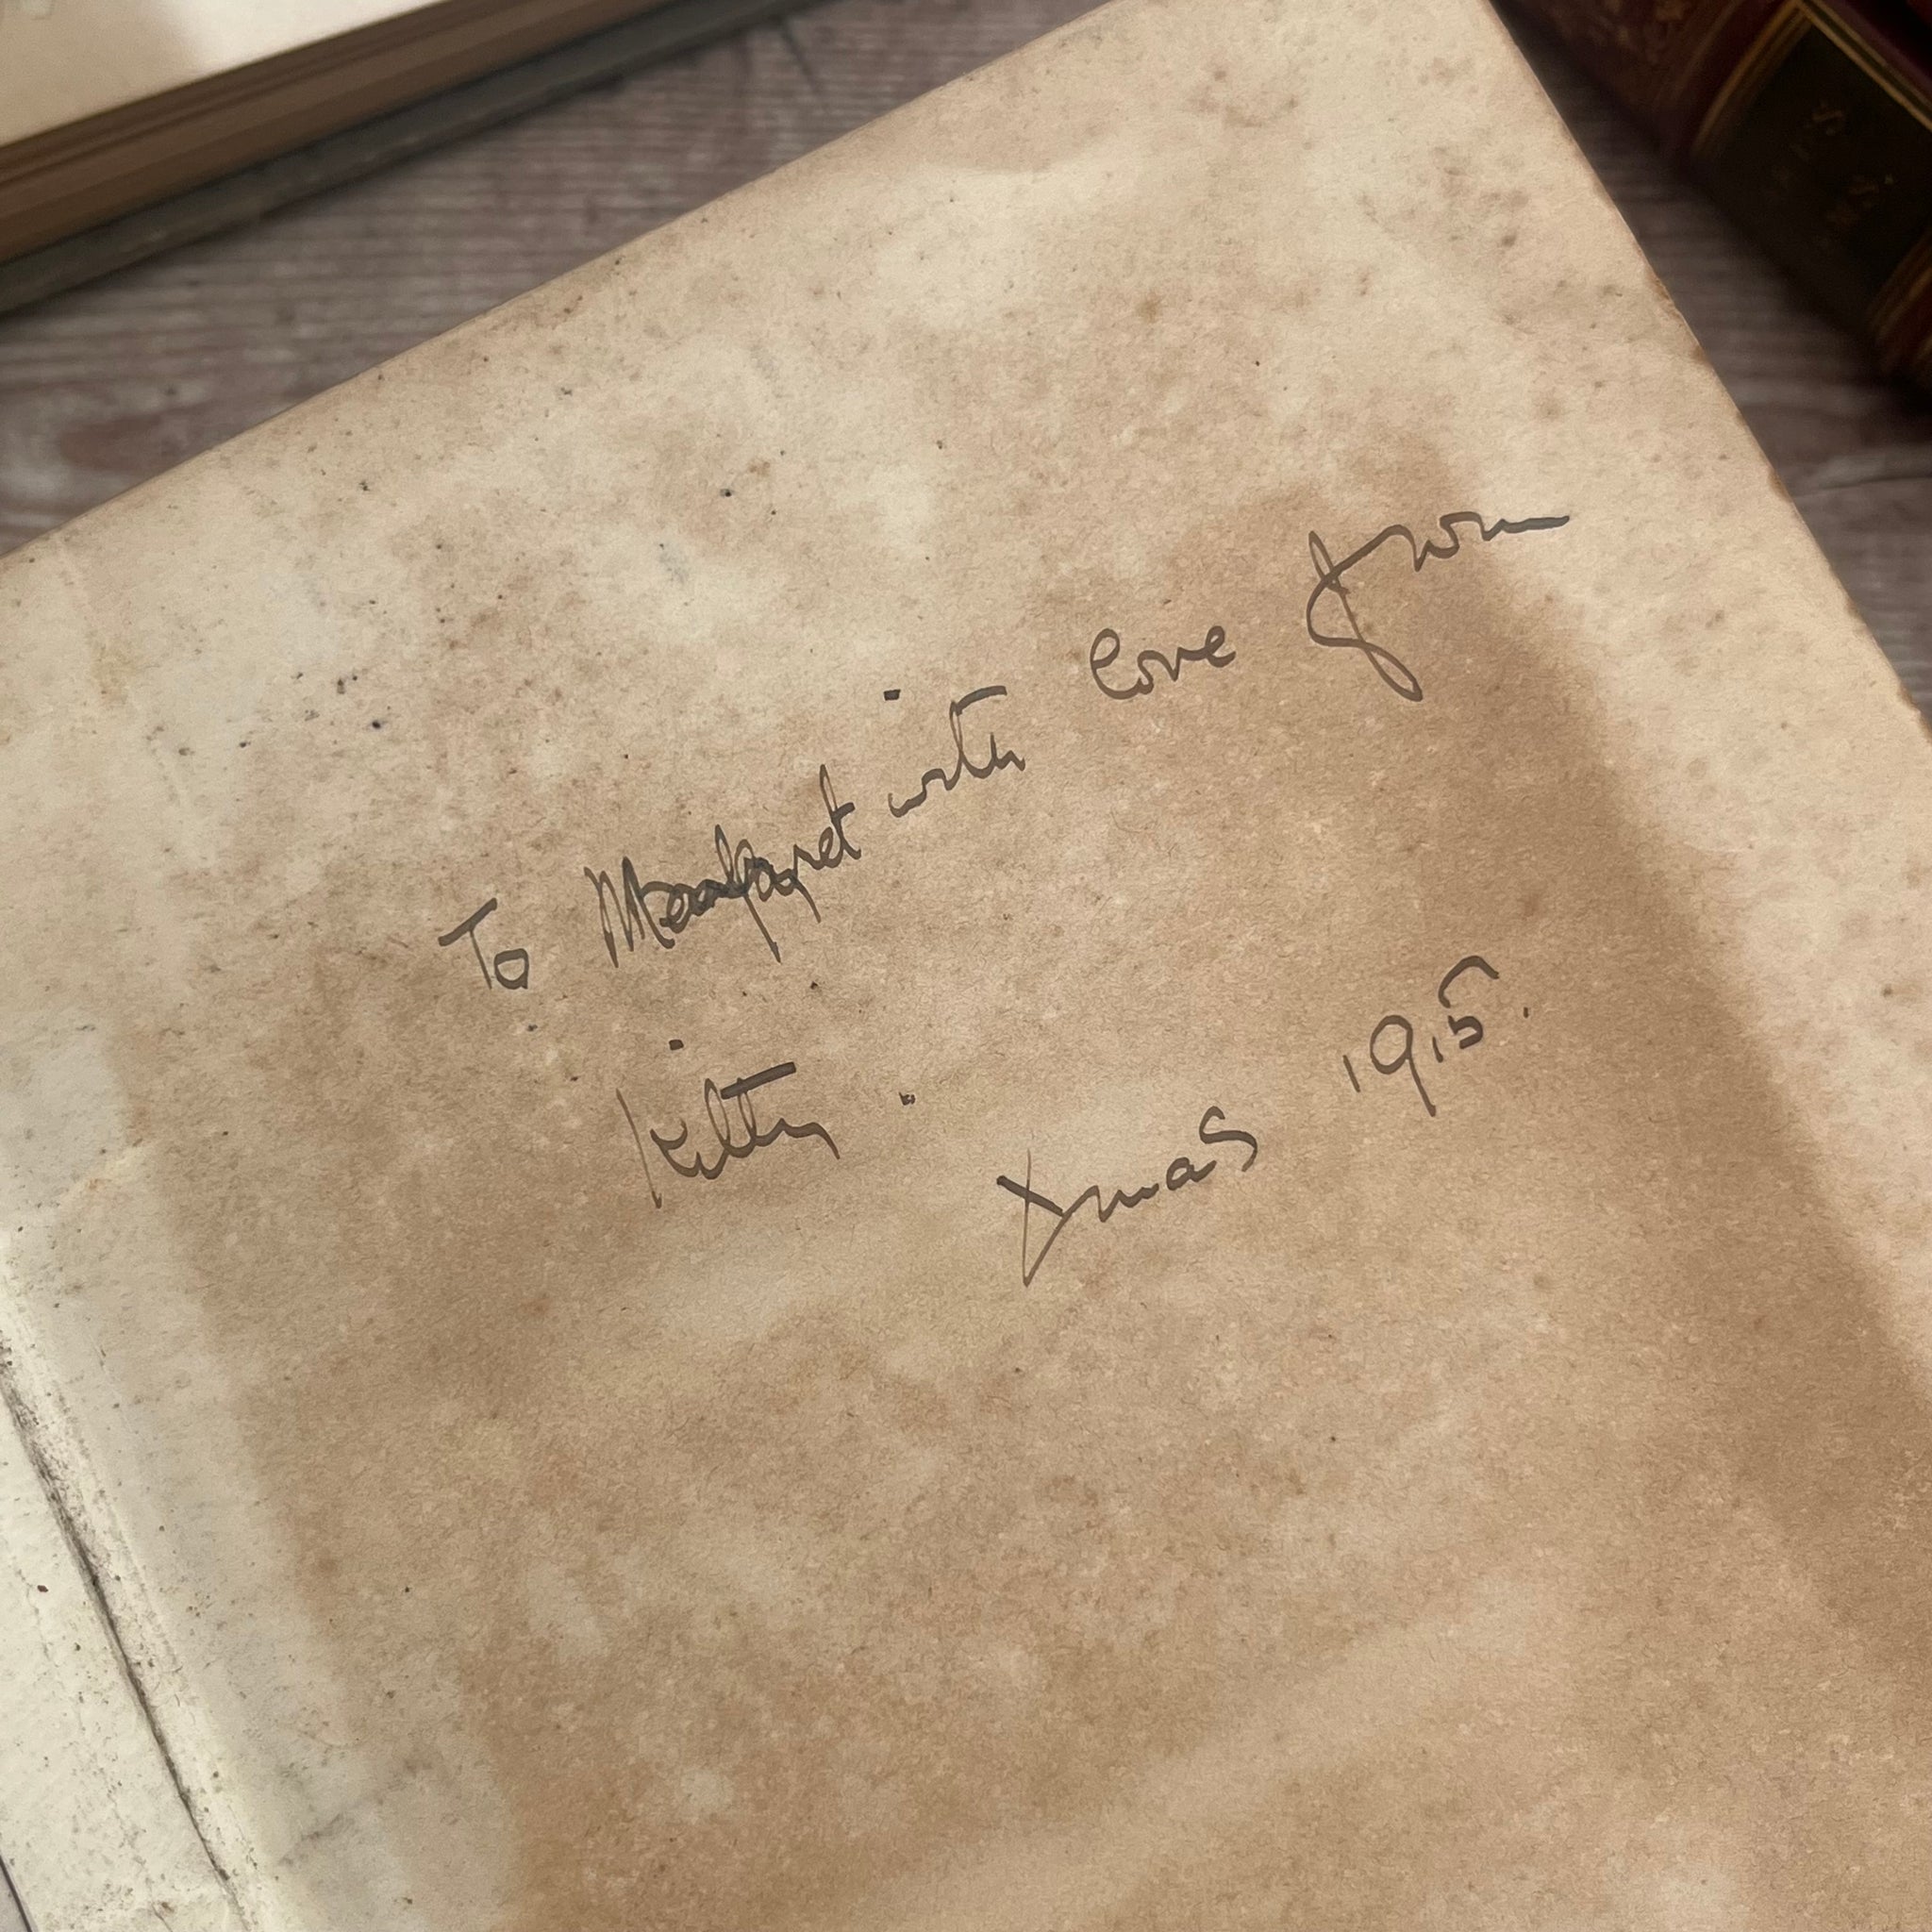 To Margaret with love from
Kitty.
Xmas 1915.